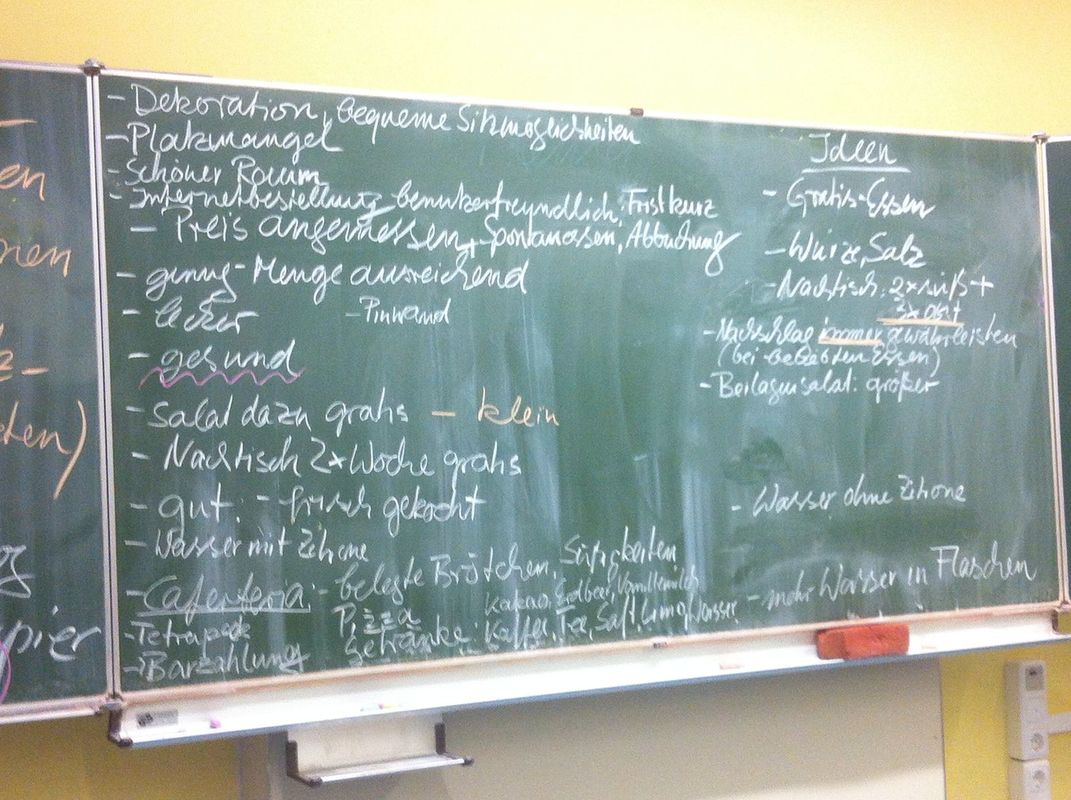 en
- Dekoration, bequeme Sitzmöglichkeiten
- Platzmangel
- Schöner Raum
- Internetbestellung - benutzerfreundlich, Frist kurz
- Preis angemessen, + Spontanessen, Abbuchung
- genug - Menge ausreichend
- lecker - Pinwand
- gesund
- Salat dazu gratis - klein
- Nachtisch 2x Woche gratis
- gut: - frisch gekocht
- Wasser mit Zitrone
- Cafeteria: - belegte Brötchen, Süßigkeiten
Pizza Kakao, Erdbeer, Vanillemilch
- Tetrapack Getränke: Kaffee, Tee, Saft, Limo, Wasser
- Barzahlung
Ideen
- Gratis-Essen
- Würze, Salz
- Nachtisch: 2x süß +
3x Obst
- Nachschlag immer gewährleisten
(bei beliebten Essen)
- Beilagensalat: größer
- Wasser ohne Zitrone
- mehr Wasser in Flaschen